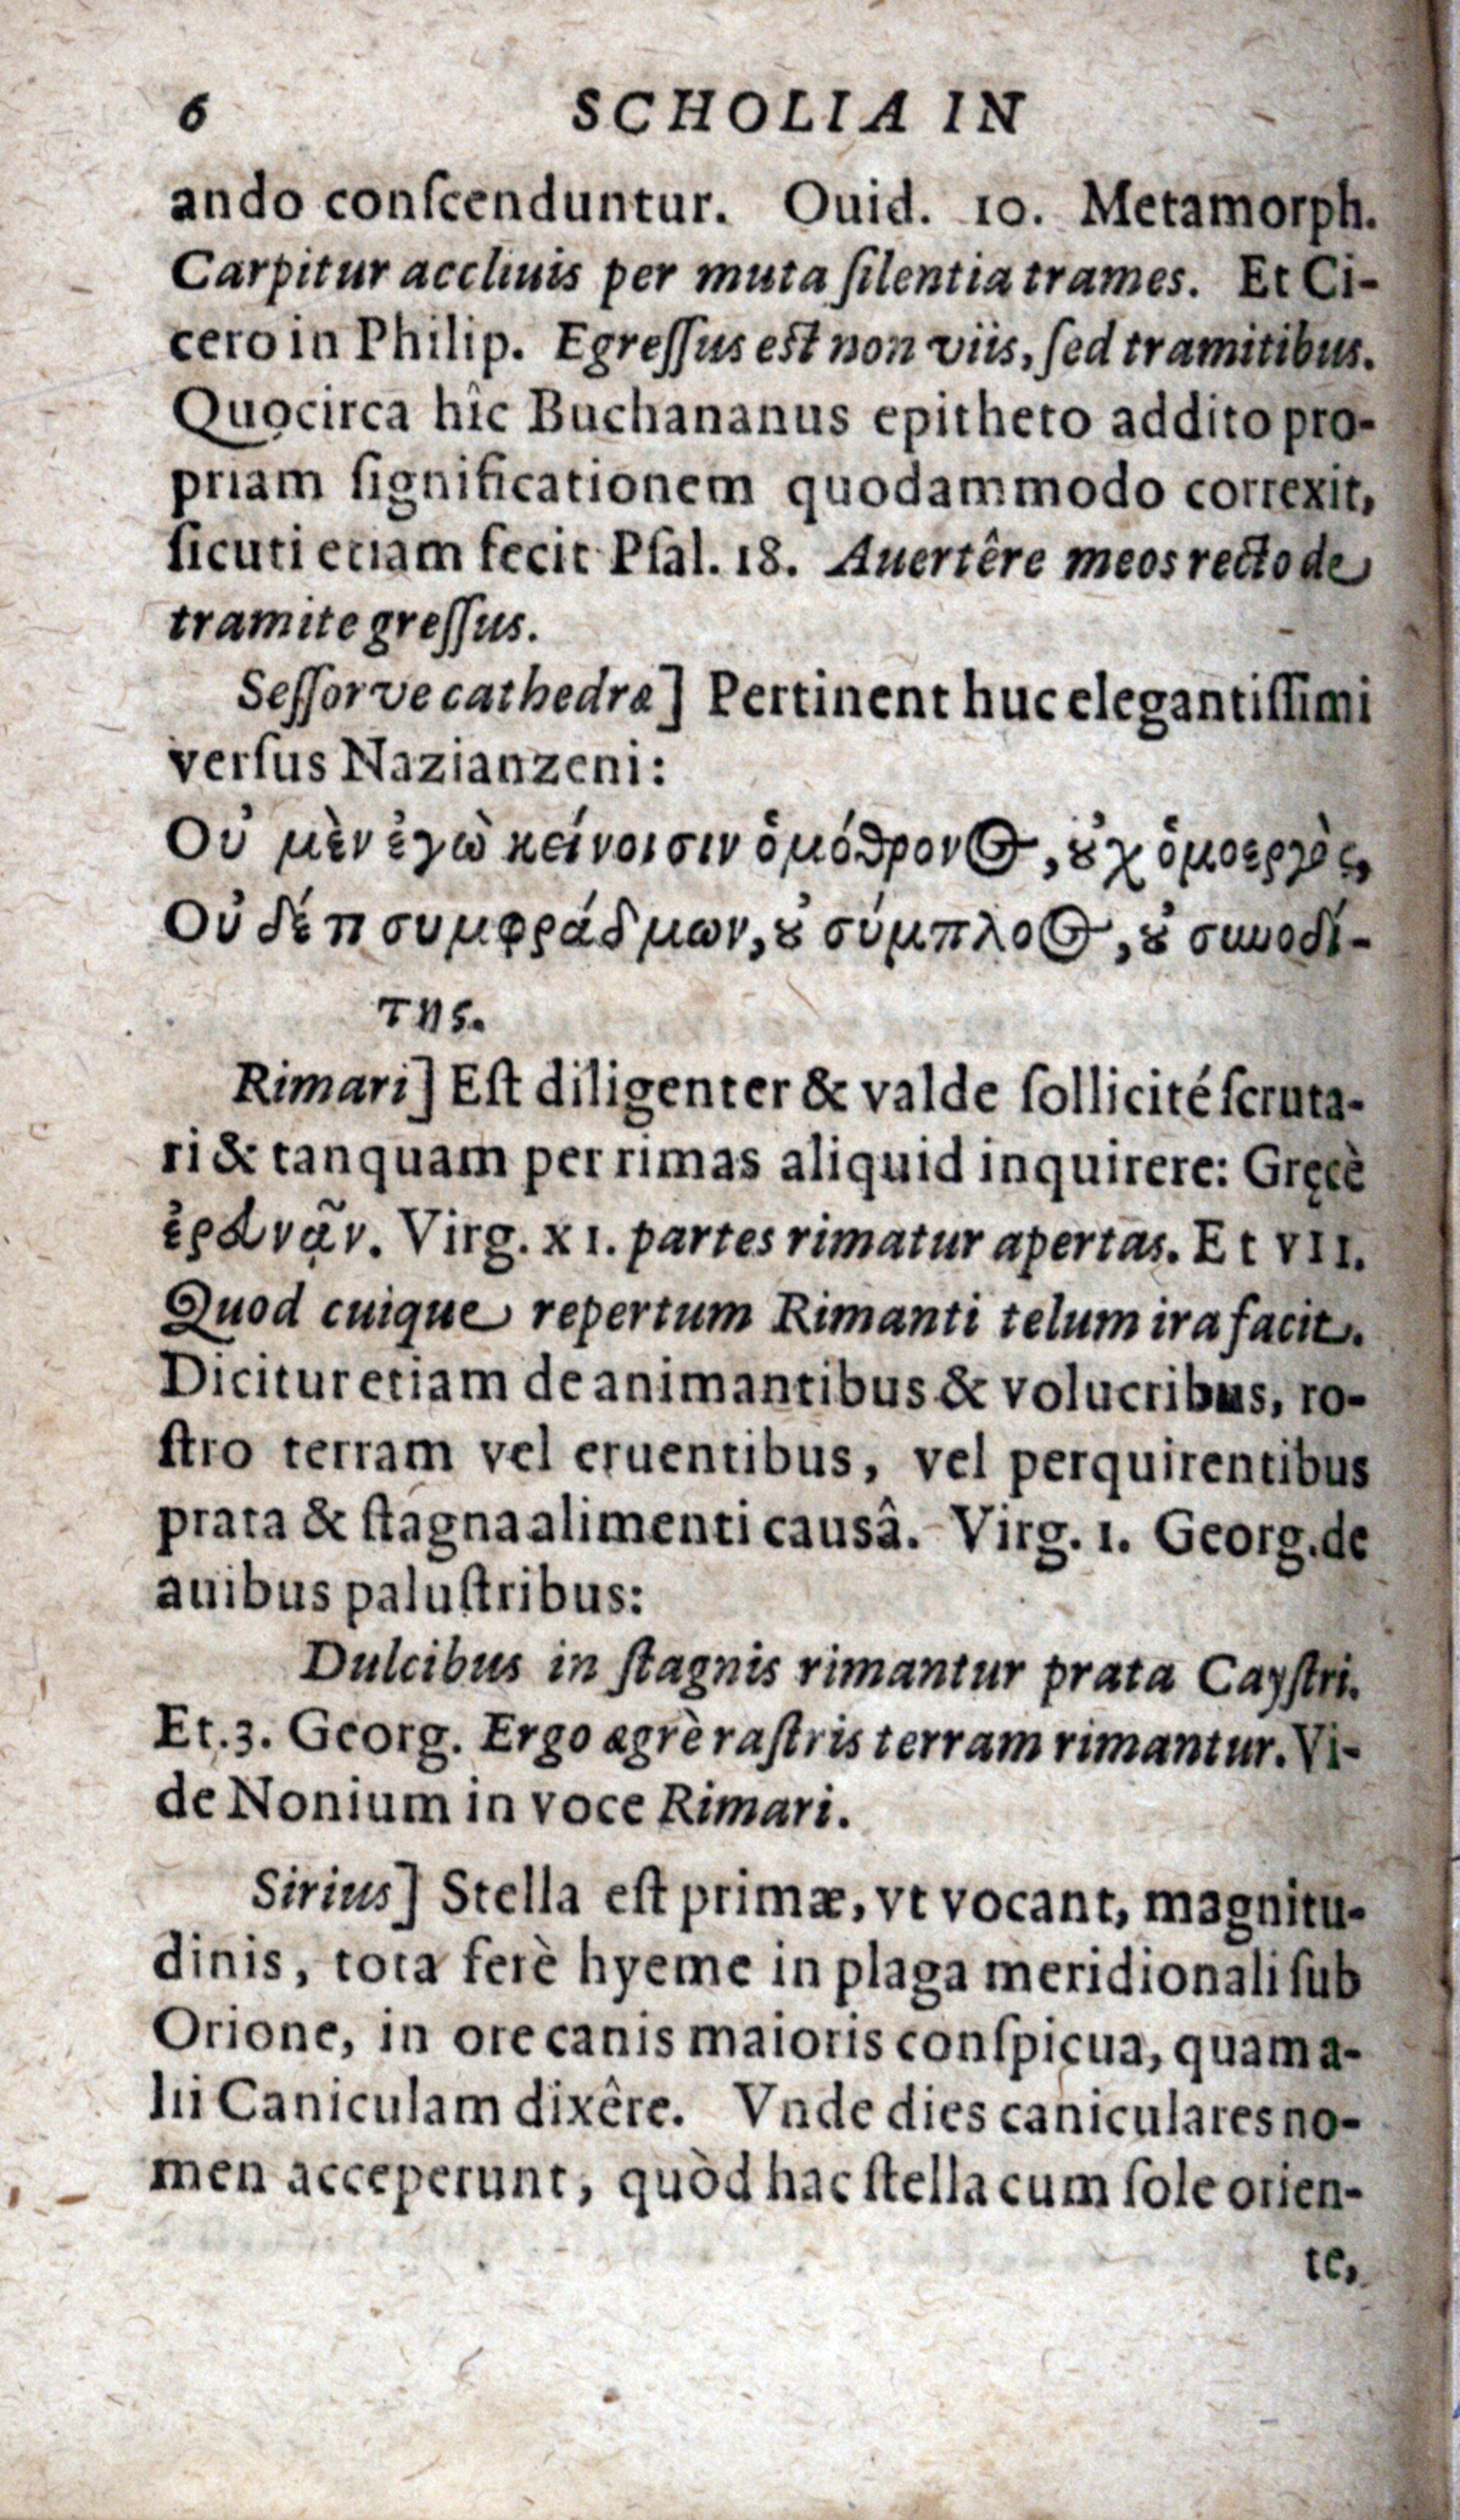 6 SCHOLIA IN
ando conſcenduntur. Ouid. 10. Metamorph.
Carpitur accliuis per muta ſilentia trames. Et Ci-
cero in Philip. Egreſſus est non viis, ſed tramitibus.
Quocirca hîc Buchananus epitheto addito pro-
priam ſignificationem quodammodo correxit,
ſicuti etiam fecit Pſal. 18. Auertêre meos recto de
tramite greſſus.
Seſſorve cathedræ] Pertinent huc elegantiſſimi
verſus Nazianzeni:
Οὐ μὲν ἐγὼ κείνοισιν ὁμόθρονος, οὐχ ὁμοεργὸς,
Οὐδέ τι συμφράδμων, οὐ σύμπλοος, οὐ συνοδί-
της.
Rimari] Eſt diligenter & valde ſollicité ſcruta-
ri & tanquam per rimas aliquid inquirere: Gręcè
ἐρευνᾷν. Virg. XI. partes rimatur apertas. Et VII.
Quod cuique repertum Rimanti telum ira facit.
Dicitur etiam de animantibus & volucribus, ro-
ſtro terram vel eruentibus, vel perquirentibus
prata & ſtagna alimenti causâ. Virg. 1. Georg. de
auibus paluſtribus:
Dulcibus in ſtagnis rimantur prata Cayſtri.
Et. 3. Georg. Ergo ægrè raſtris terram rimantur. Vi-
de Nonium in voce Rimari.
Sirius] Stella eſt primæ, vt vocant, magnitu-
dinis, tota ferè hyeme in plaga meridionali ſub
Orione, in ore canis maioris conſpicua, quam a-
lii Caniculam dixêre. Vnde dies caniculares no-
men acceperunt, quòd hac ſtella cum ſole orien-
te,